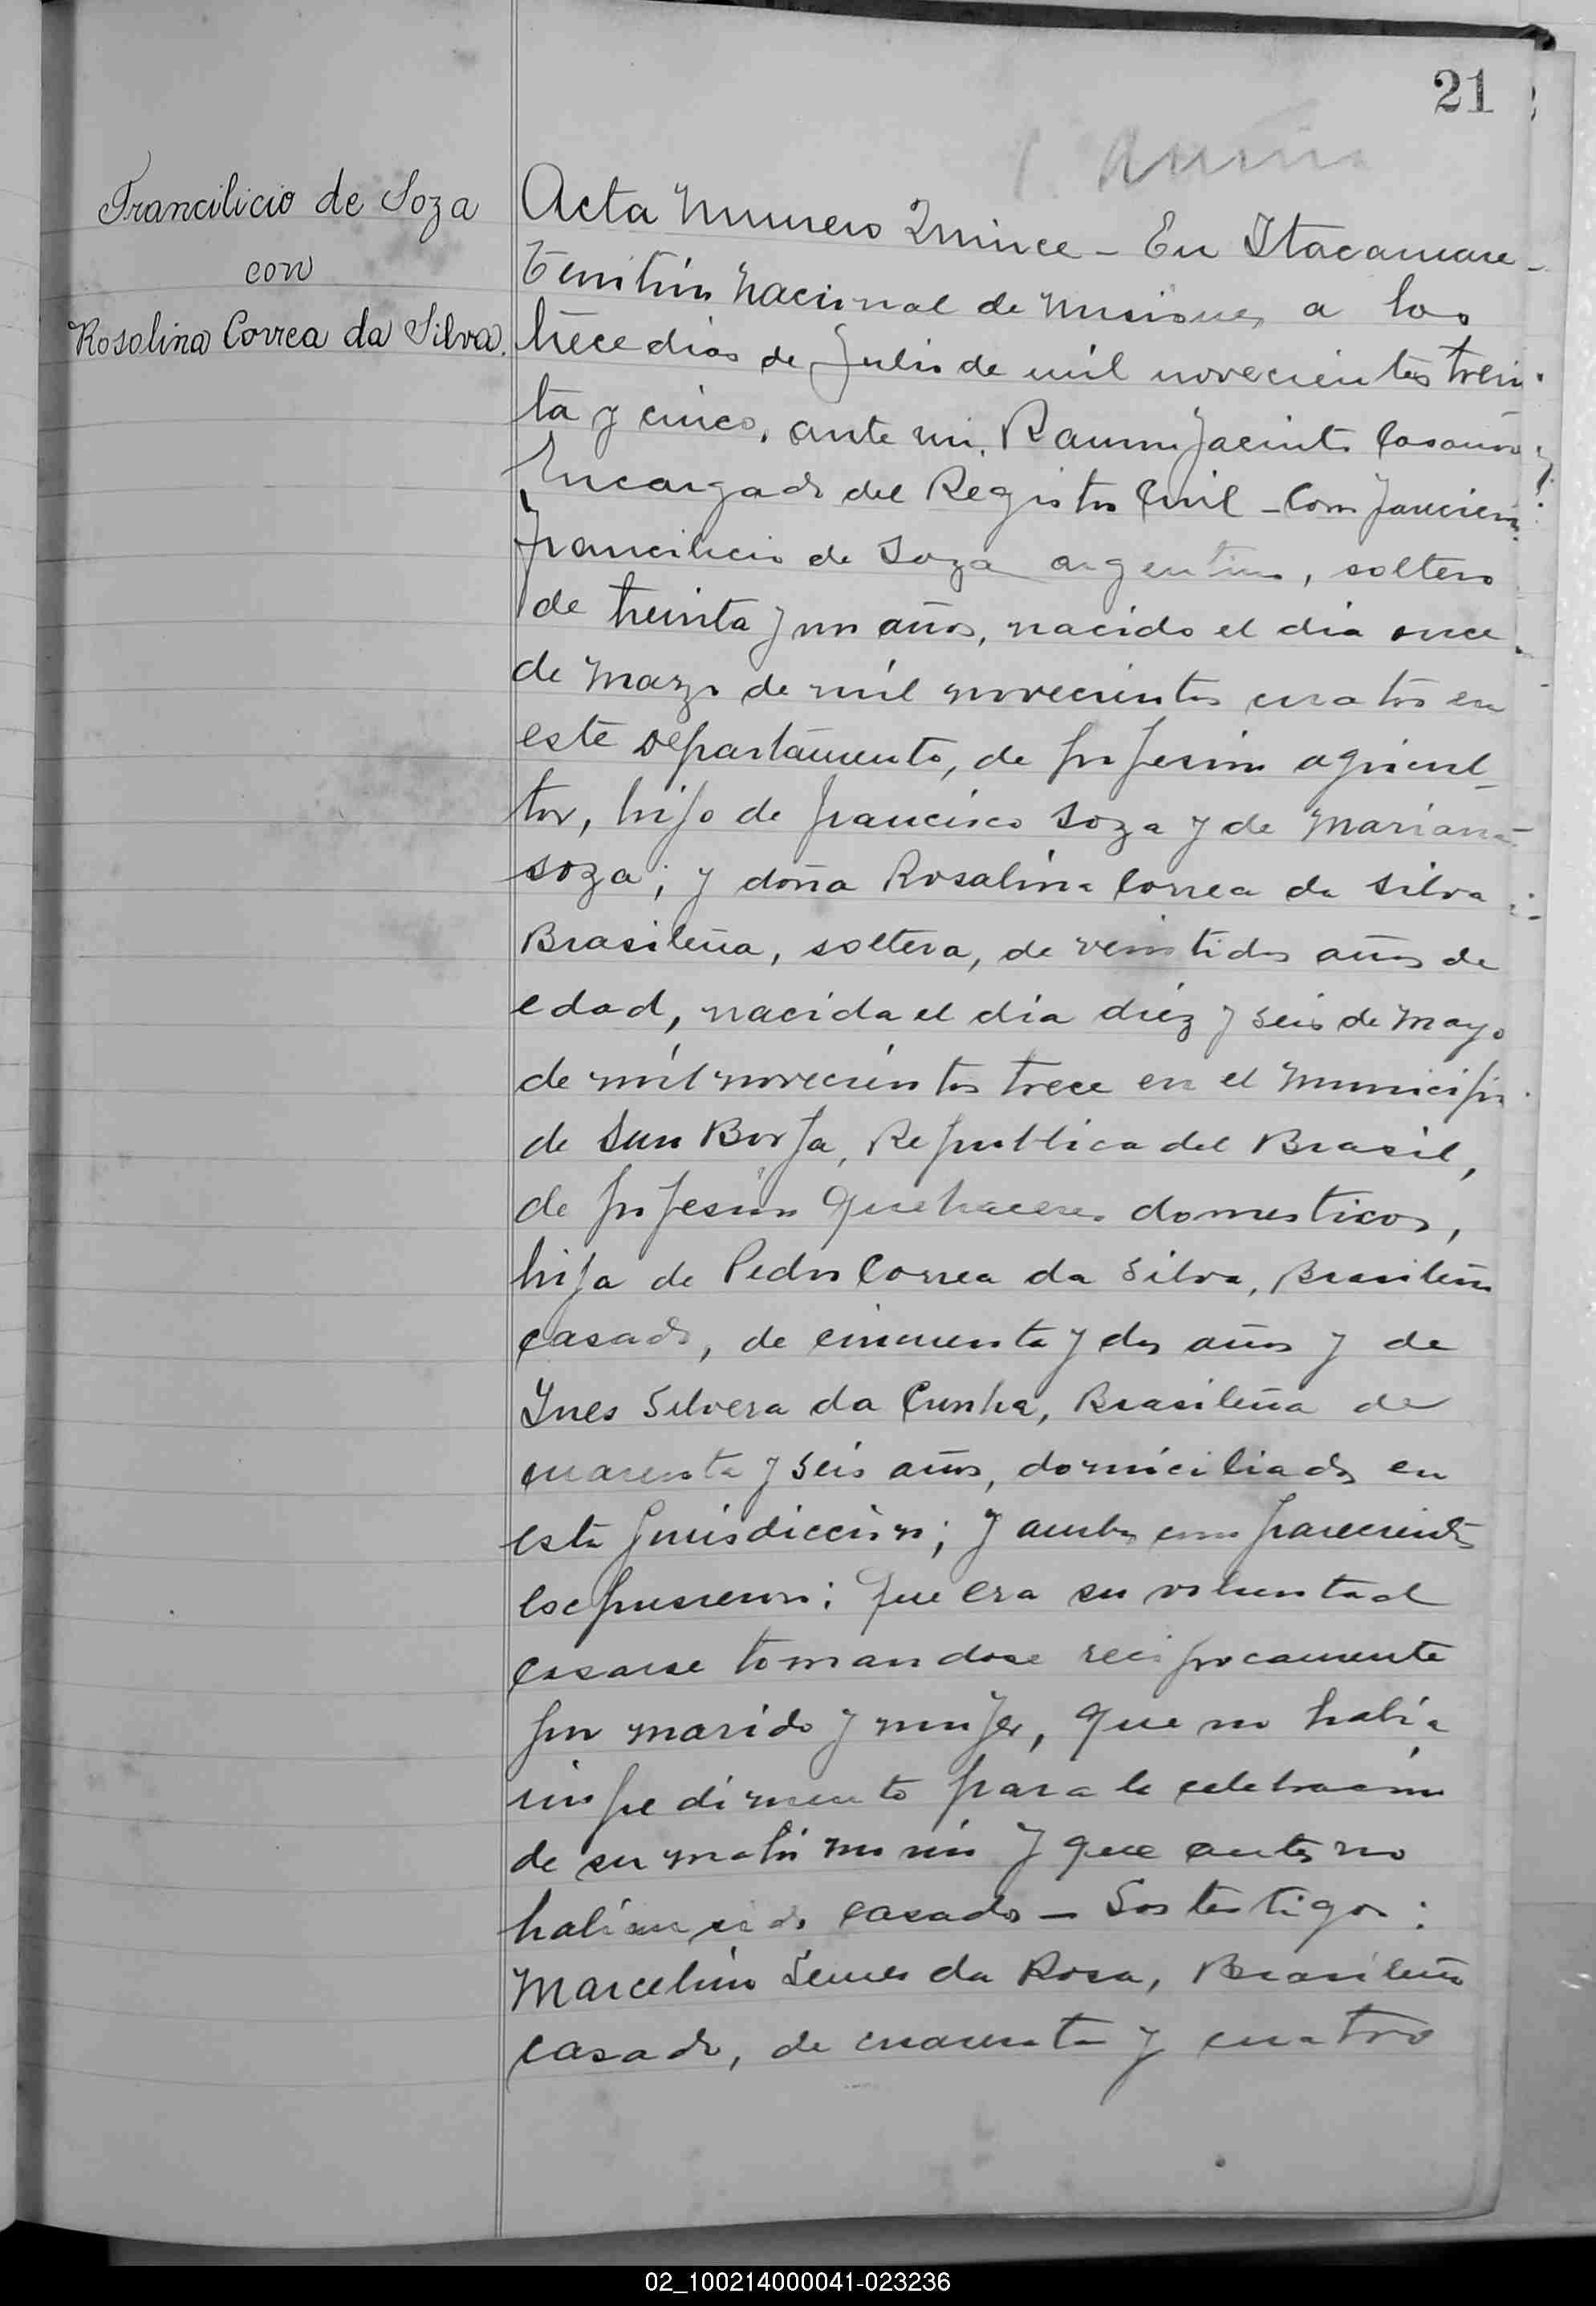 21
Francilicio de Soza
con
Rosolina Correa da Silva.
Acta Numero Quince - En Itacaruare -
Territorio Nacional de Misiones, a los
trece dias de Julio de mil novecientos trein
ta y cinco, ante mi, Ramon Jacinto
Encargado del Registro Civil - Comparecieron
Francilicio de Soza argentino, soltero
de treinta y un años, nacido el dia once
de Marzo de mil novecientos cuatro en
este Departamento, de profesion agricul-
tor, hijo de Francisco Soza y de Mariana
Soza; y doña Rosalina Correa da Silva
Brasileña, soltera, de veintidos años de
edad, nacida el día diéz y seis de Mayo
de mil novecientos trece en el Municipio
de San Borja, Republica del Brasil,
de profesion quehaceres domesticos,
hija de Pedro Correa da Silva, Brasileño
casado, de cincuenta y dos años y de
Ynes Silvera da Cunha, Brasileña de
cuarenta y seis años, domiciliados en
esta jurisdiccion; y ambos comparecientes
escpusieron: que era su voluntad
casarse tomandose reciprocamente
por marido y mujer, que no había
impedimento para la celebracion
de su matrimonio y que antes no
habian sido casados - Los testigos:
Marcelino da Rosa, Brasileño
casado, de cuarenta y cuatro
02_100214000041-023236